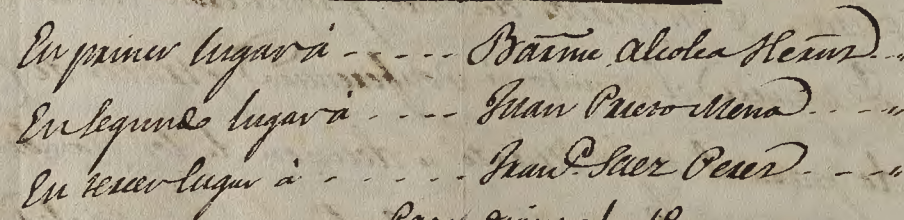 En primer lugar á - - - - - Barme Alcolea Herñz - - "
En segundo lugar á - - - - Juan Prieto Mena - - - - "
En tercer lugar á - - - - - Franco. Saez Perez - - - "